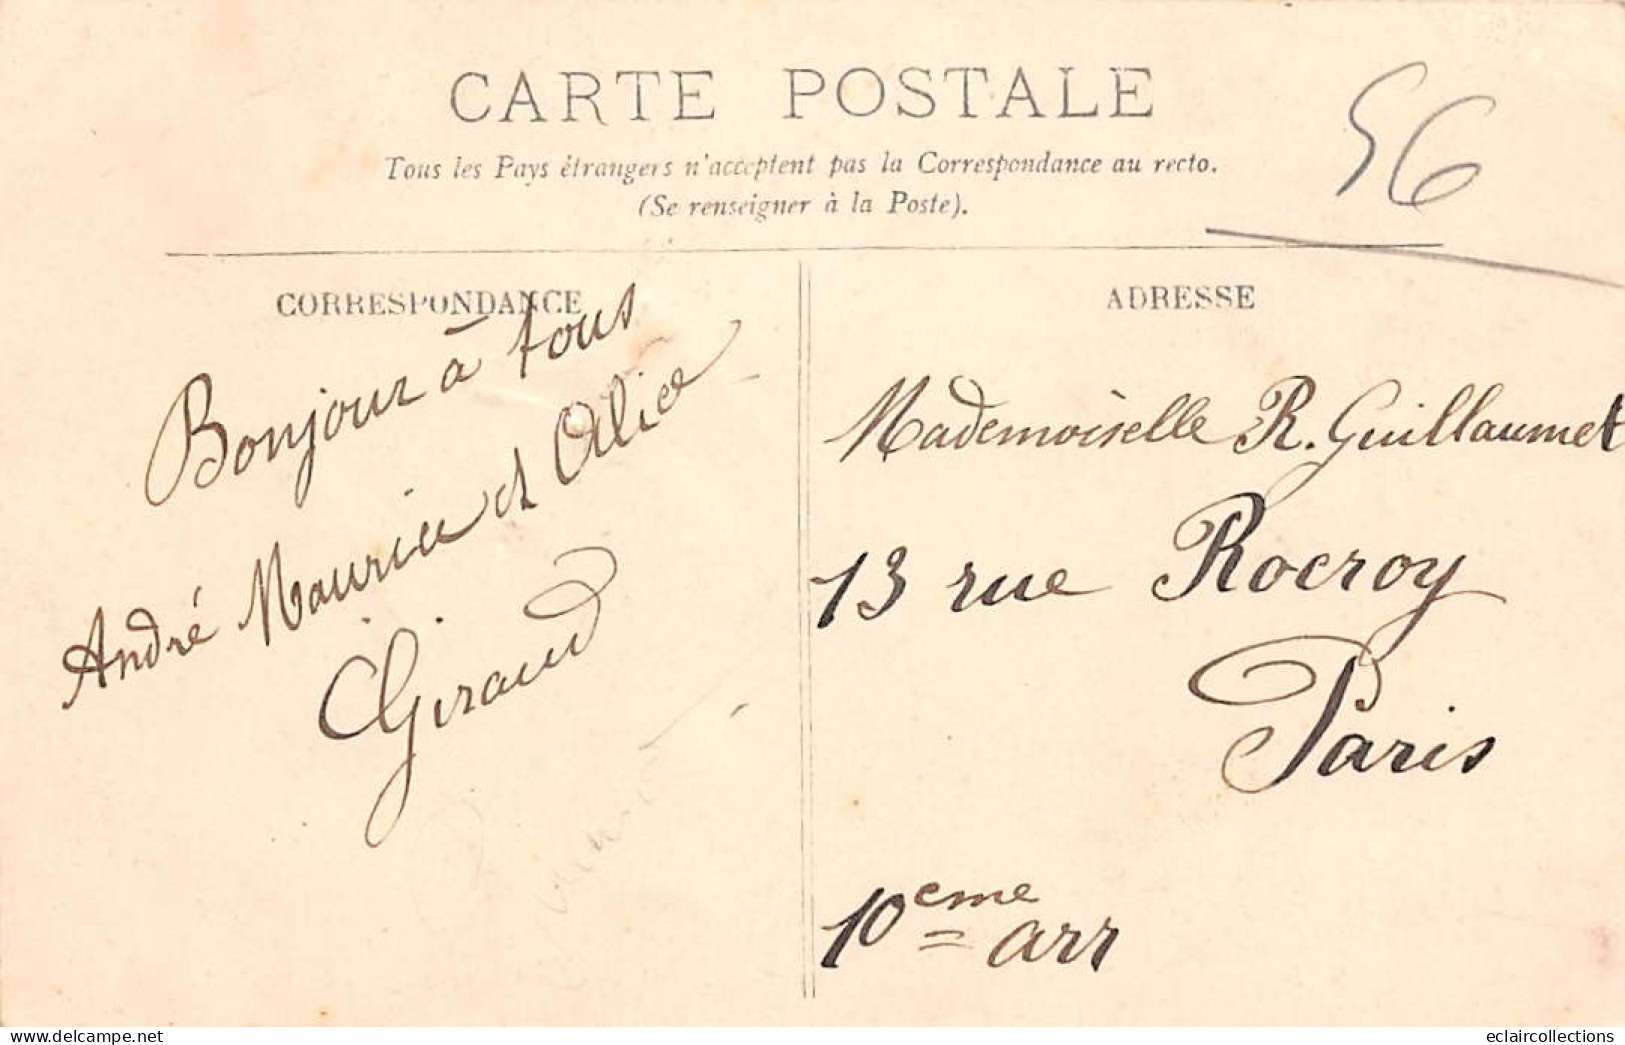 CARTE POSTALE
Tous les Pays étrangers n'acceptent pas la Correspondance au recto.
(Se renseigner à la Poste).
56
CORRESPONDANCE
Bonjour à tous
André Maurice et Alice
Giraud
ADRESSE
Mademoiselle R. Guillaumet
13 rue Rocroy
Paris
10eme arr
www.delcampe.net
eclaircollections